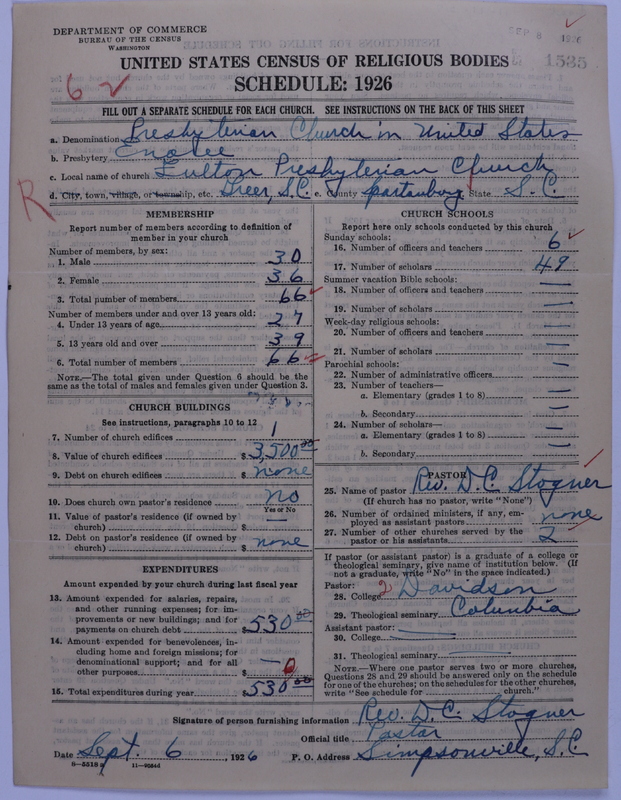 DEPARTMENT OF COMMERCE
BUREAU OF THE CENSUS
WASHINGTON
SEP 8 1926
1535
UNITED STATES CENSUS OF RELIGIOUS BODIES
SCHEDULE: 1926
62
FILL OUT A SEPARATE SCHEDULE FOR EACH CHURCH. SEE INSTRUCTIONS ON THE BACK OF THIS SHEET
a. Denomination Presbyterian Church in United States
b. Presbytery Enoree
c. Local name of church Fulton Presbyterian Church
d. City, town, village, or township, etc. Greer, S.C. e. County Spartanburg State S.C.
R
MEMBERSHIP
Report number of members according to definition of
member in your church
Number of members, by sex:
1. Male 30
2. Female 36
3. Total number of members 66
Number of members under and over 13 years old:
4. Under 13 years of age 27
5. 13 years old and over 39
6. Total number of members 66
NOTE.—The total given under Question 6 should be the
same as the total of males and females given under Question 3.
CHURCH BUILDINGS
See instructions, paragraphs 10 to 12
7. Number of church edifices 1
8. Value of church edifices $ 3,500.00
9. Debt on church edifices $ none
10. Does church own pastor's residence no
Yes or No
11. Value of pastor's residence (if owned by
church) $ —
12. Debt on pastor's residence (if owned by
church) $ none
EXPENDITURES
Amount expended by your church during last fiscal year
13. Amount expended for salaries, repairs,
and other running expenses; for im-
provements or new buildings; and for
payments on church debt $ 530.00
14. Amount expended for benevolences, in-
cluding home and foreign missions; for
denominational support; and for all
other purposes $ — 0
15. Total expenditures during year $ 530.00
CHURCH SCHOOLS
Report here only schools conducted by this church
Sunday schools:
16. Number of officers and teachers 6
17. Number of scholars 49
Summer vacation Bible schools:
18. Number of officers and teachers —
19. Number of scholars —
Week-day religious schools:
20. Number of officers and teachers —
21. Number of scholars —
Parochial schools:
22. Number of administrative officers —
23. Number of teachers—
a. Elementary (grades 1 to 8) —
b. Secondary —
24. Number of scholars—
a. Elementary (grades 1 to 8) —
b. Secondary —
PASTOR
25. Name of pastor Rev. D. C. Stogner
(If church has no pastor, write "None")
26. Number of ordained ministers, if any, em-
ployed as assistant pastors none
27. Number of other churches served by the
pastor or his assistants 2
If pastor (or assistant pastor) is a graduate of a college or
theological seminary, give name of institution below. (If
not a graduate, write "No" in the space indicated.)
Pastor:
28. College 2 Davidson
29. Theological seminary Columbia
Assistant pastor:
30. College —
31. Theological seminary —
NOTE.—Where one pastor serves two or more churches,
Questions 28 and 29 should be answered only on the schedule
for one of the churches; on the schedules for the other churches,
write "See schedule for church."
Signature of person furnishing information Rev. D. C. Stogner
Official title Pastor
Date Sept. 6, 1926 P. O. Address Simpsonville, S.C.
8—5518a 11—9564d